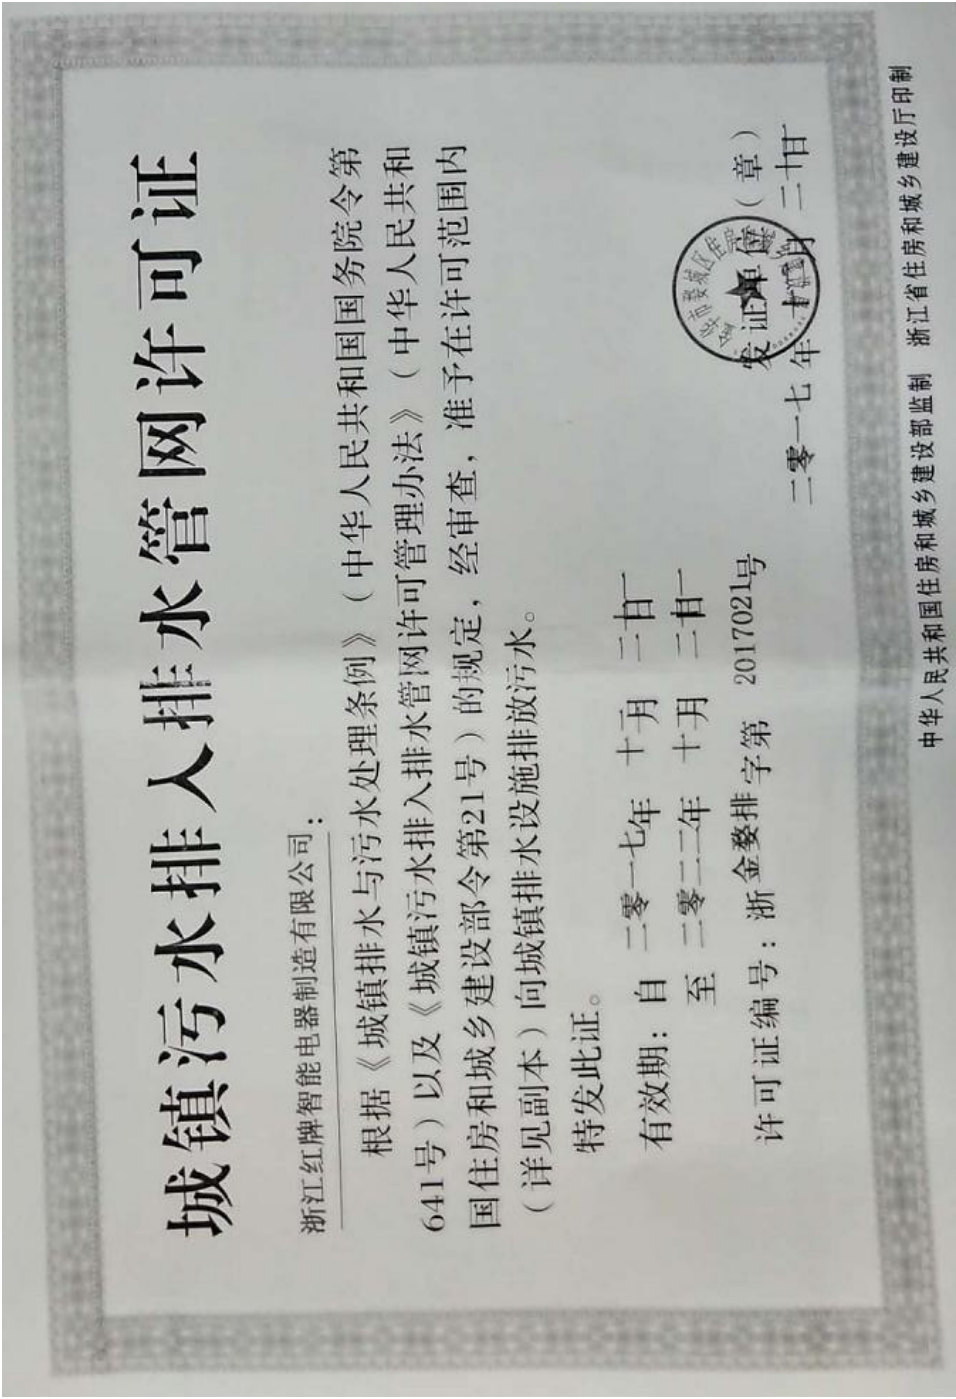 城镇污水排入排水管网许可证
浙江红牌智能电器制造有限公司：
根据《城镇排水与污水处理条例》（中华人民共和国国务院令第
641号）以及《城镇污水排入排水管网许可管理办法》（中华人民共和
国住房和城乡建设部令第21号）的规定，经审查，准予在许可范围内
（详见副本）向城镇排水设施排放污水。
特发此证。
有效期：自 二零一七年 十 月 二 日
至 二零二二年 十 月 二 日
许可证编号：浙 金婺排 字第 2017021号
发证单位（章）
二零一七年 月 二十 日
金华市婺城区住房
中华人民共和国住房和城乡建设部监制 浙江省住房和城乡建设厅印制